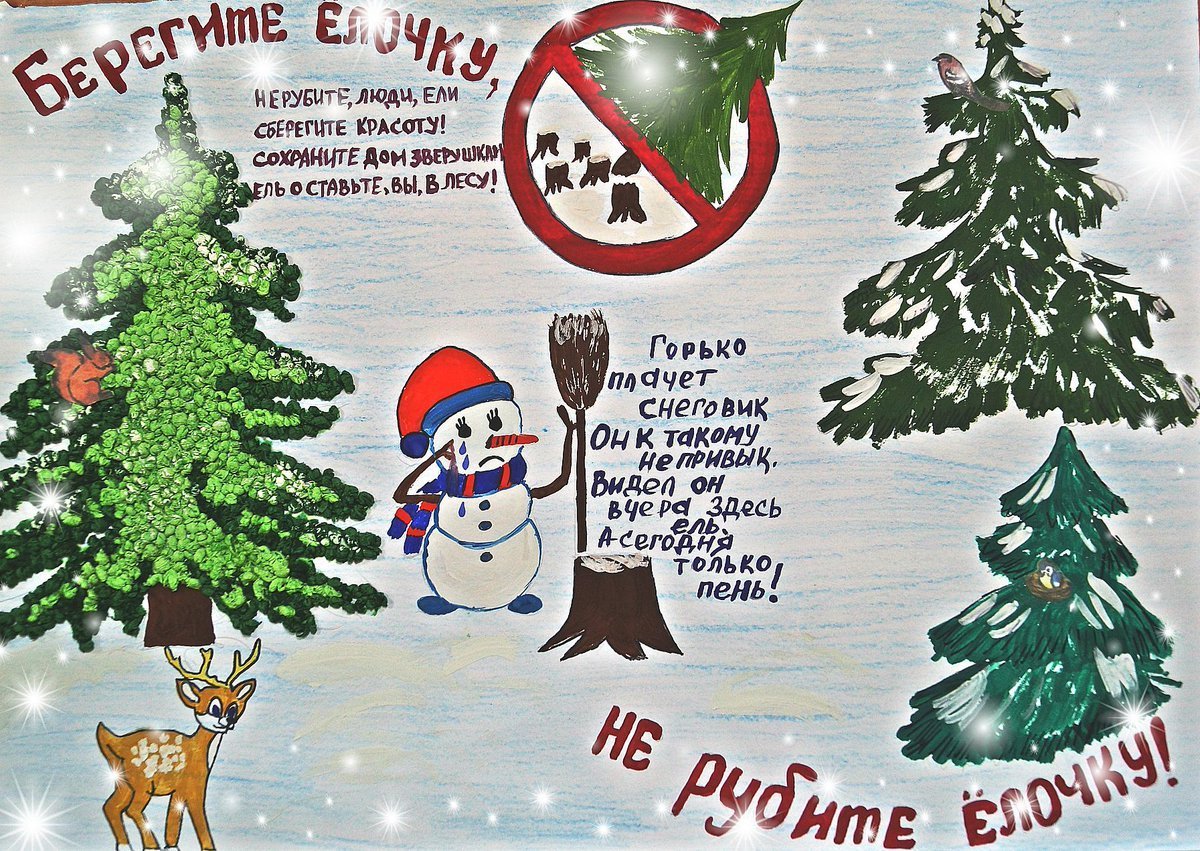 БЕРЕГИТЕ ЁЛОЧКУ,
НЕ РУБИТЕ, ЛЮДИ, ЕЛИ
СБЕРЕГИТЕ КРАСОТУ!
СОХРАНИТЕ ДОМ ЗВЕРУШКАМ
ЕЛЬ ОСТАВЬТЕ, ВЫ, В ЛЕСУ!
Горько
плачет
снеговик
Он к такому
не привык.
Видел он
вчера здесь
ель.
А сегодня
только
пень!
НЕ РУБИТЕ ЁЛОЧКУ!